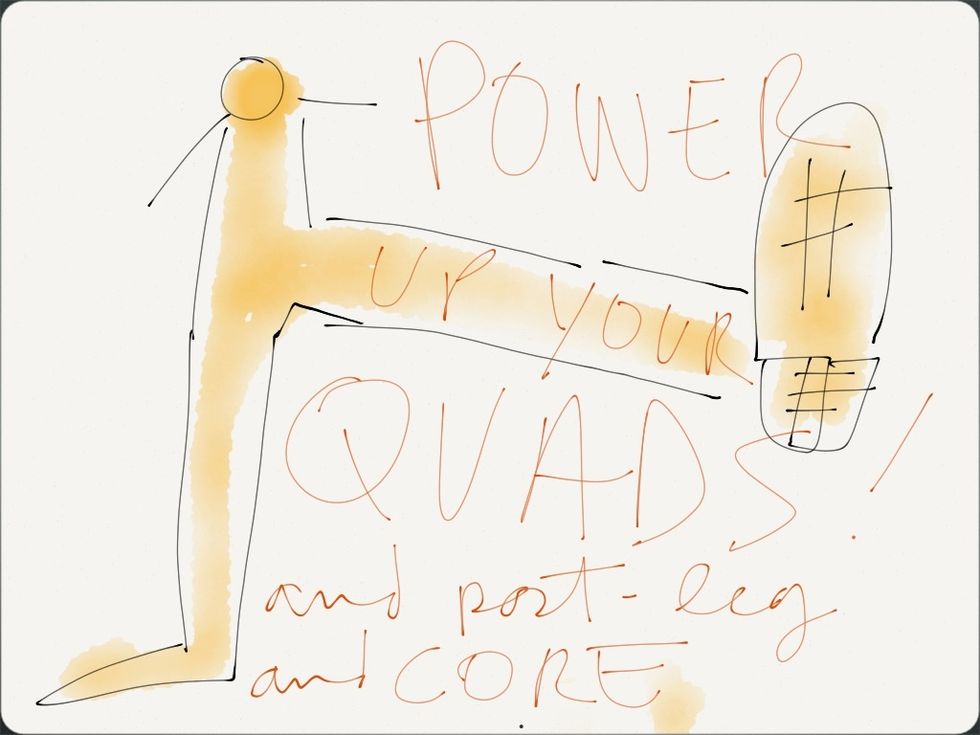 POWER
UP YOUR
QUADS!
and post-leg
and CORE